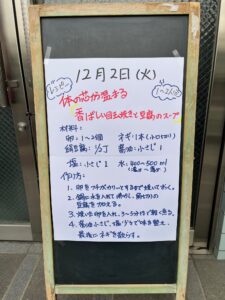 12月2日(火)
レシピ
1〜2人分
体の芯が温まる
香ばしい目玉焼きと豆腐のスープ
材料:
卵:1〜2個 ネギ:1本(小口切り)
絹豆腐:1/2丁 醤油:小さじ1
塩:小さじ1 水:400〜500ml
作り方:
1. 卵をフチがカリーッとするまで焼いておく。
2. 鍋に水を入れて沸かし、角切りの
豆腐を加える。
3. 焼いた卵を入れ、3〜5分ほど軽く煮る。
4. 醤油小さじ、塩少々で味を整え、
最後にネギを散らす。